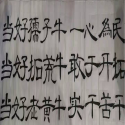 当好孺子牛一心为民
当好拓荒牛敢于开拓
当好老黄牛实干苦干